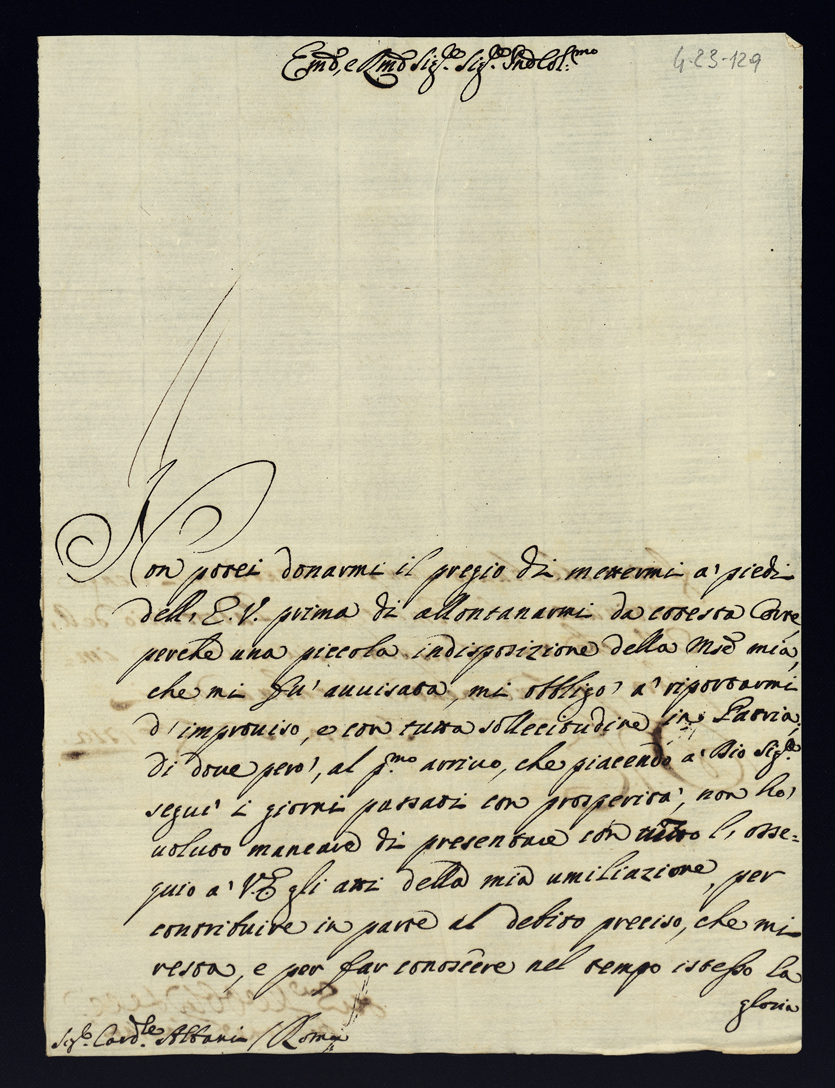 Em.o, e Rm.o Sig.re Sig.re Pnd Col.mo
4-23-129
Non potei donarmi il pregio di mettermi a' piedi
dell' E. V. prima di allontanarmi da cotesta Corte,
perche una piccola indisposizione della Mse mia,
che mi fu' auuisata, mi obbligo' a' riportarmi
d' improuiso, e con tutta sollecitudine in Patria;
di doue pero', al p.mo arriuo, che piacendo a' Dio Sig.re
segui' i giorni passati con prosperita', non ho'
uoluto mancare di presentare con tutto l' osse=
quio a' V.E gli atti della mia umiliazione, per
contribuire in parte al debito preciso, che mi
resta, e per far conoscere nel tempo istesso la
gloria
Sig.re Card.le Albani / Roma